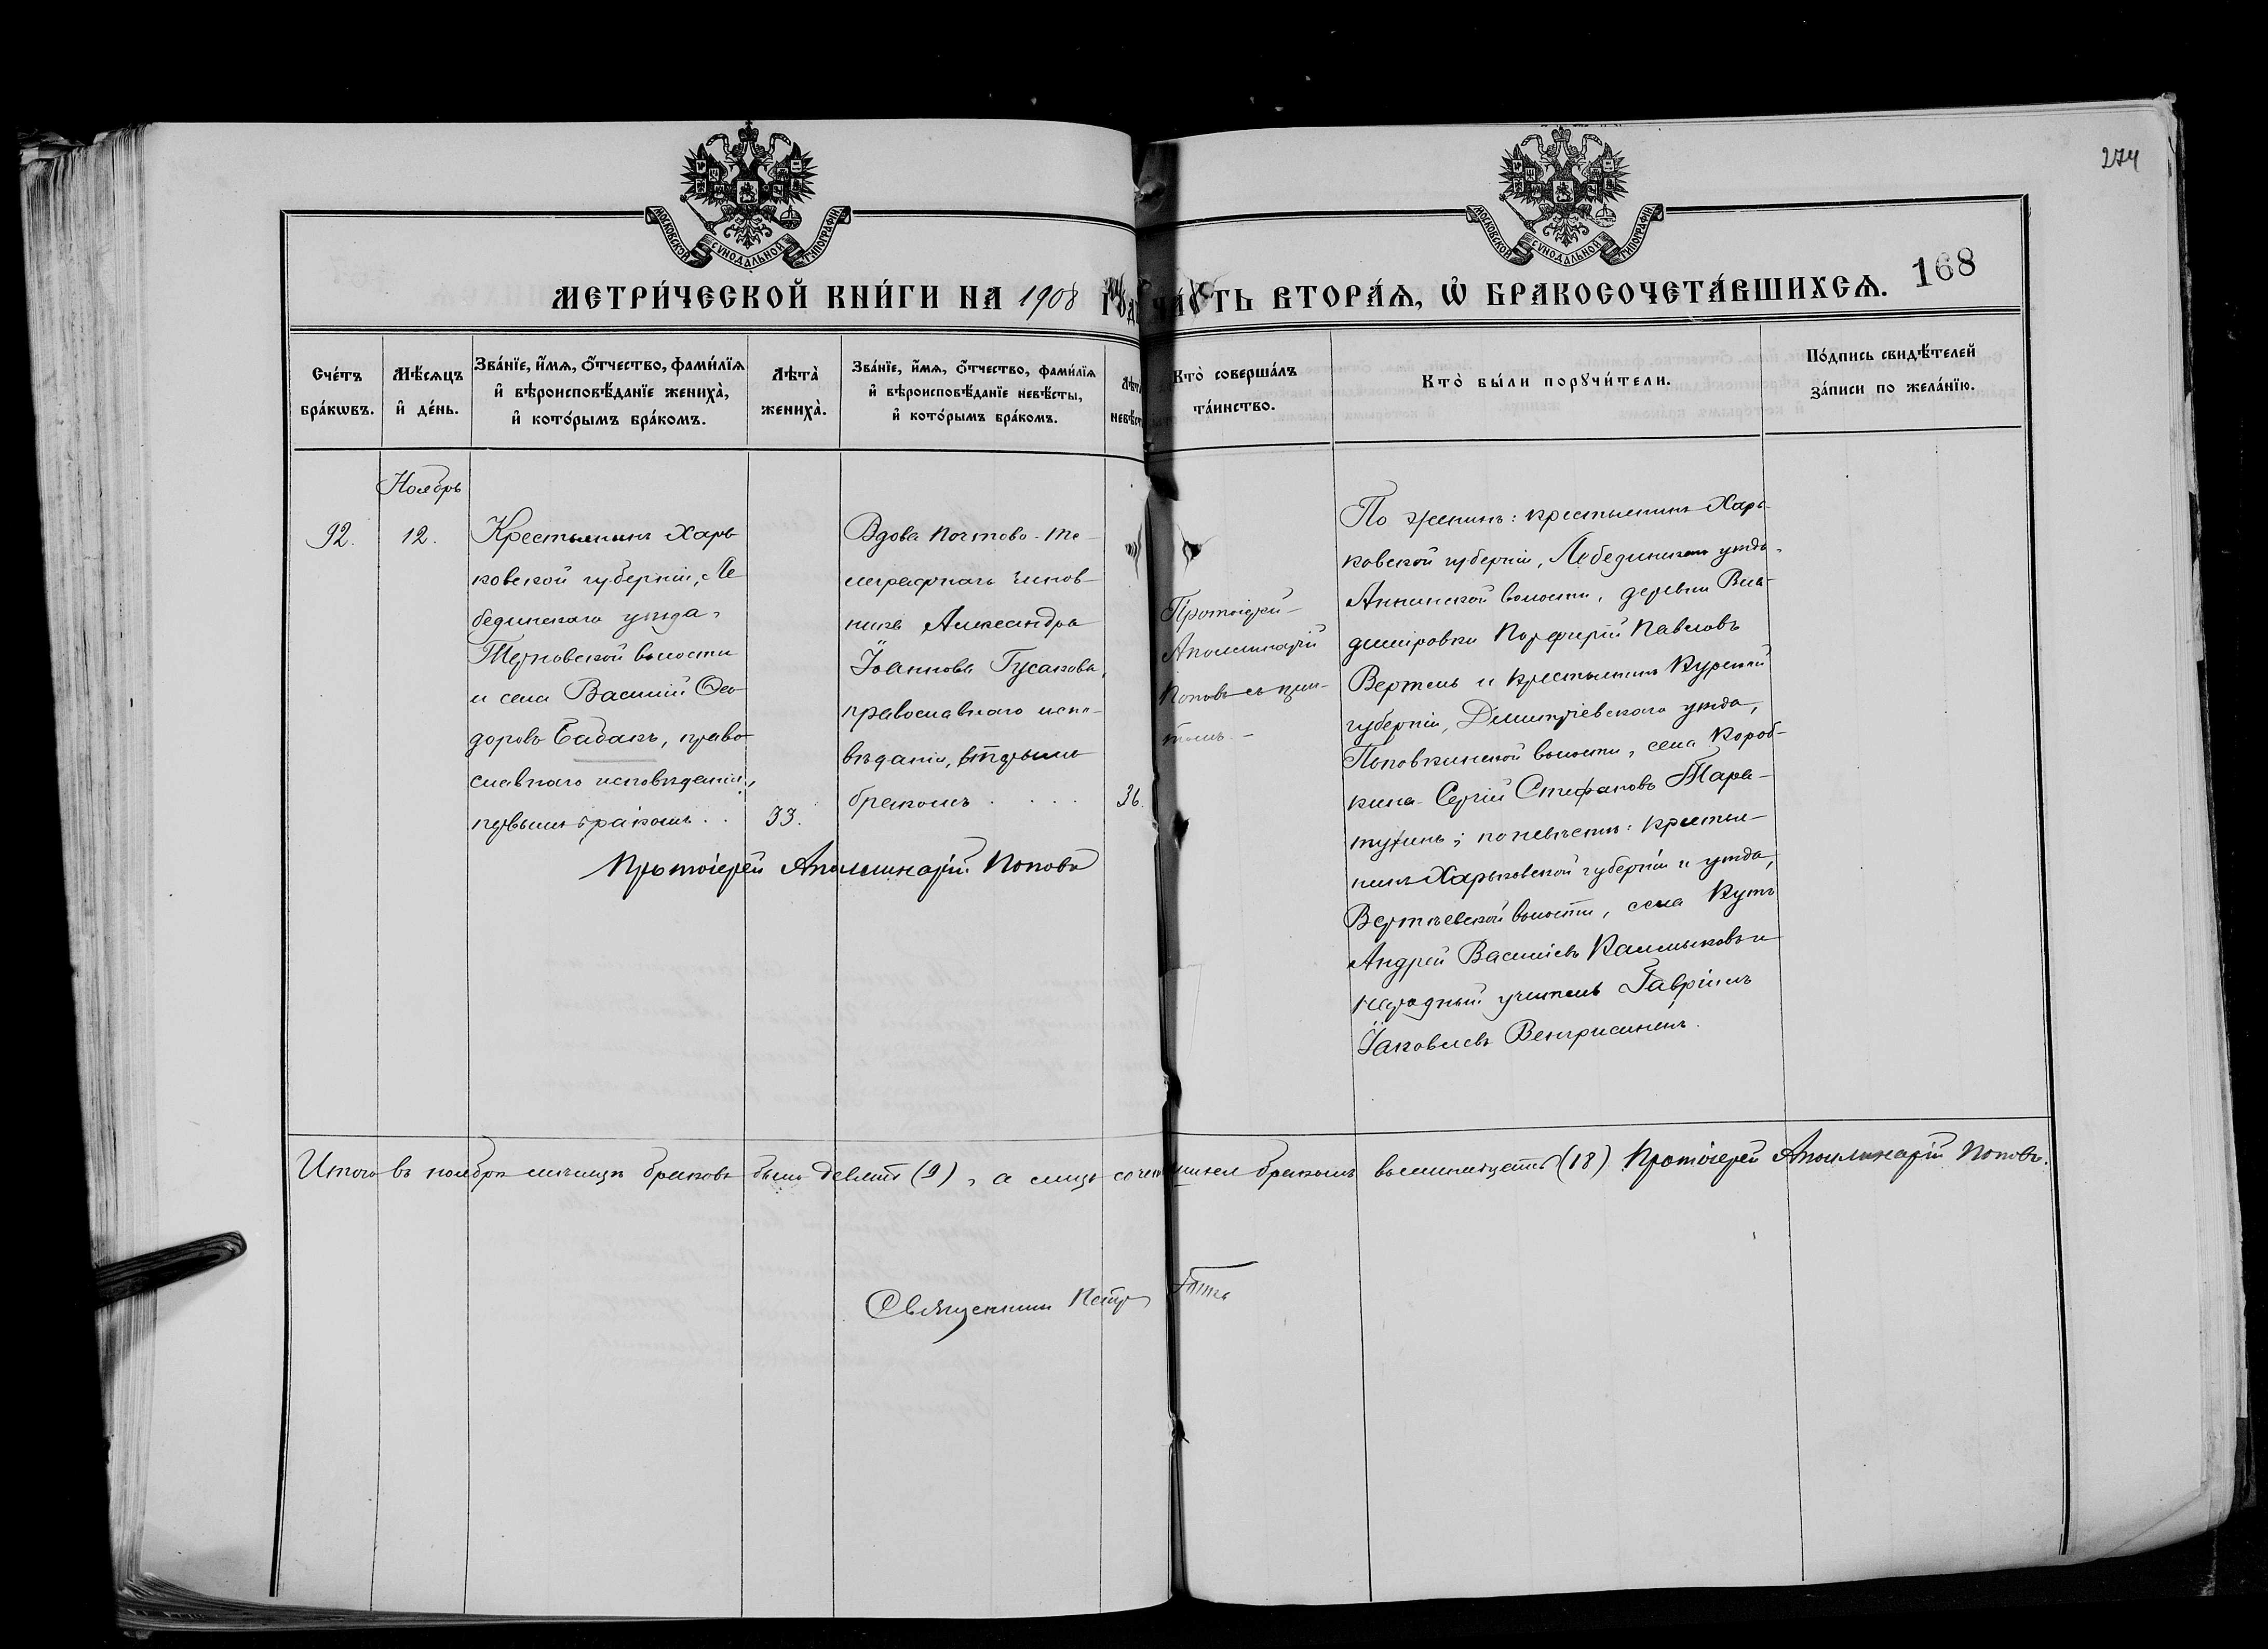 274
МОСКОВСКОЙ СУНОДАЛЬНОЙ ТИПОГРАФІИ
МОСКОВСКОЙ СУНОДАЛЬНОЙ ТИПОГРАФІИ
168
МЕТРИ́ЧЕСКОЙ КНИ́ГИ НА 1908 ГОДЪ ЧА́СТЬ ВТОРА́Ѧ, Ѽ БРАКОСОЧЕТА́ВШИХСѦ.
Сче́тъ бра́кѡвъ.
Мѣ́сѧцъ и҆ де́нь.
Зва́нїе, и҆́мѧ, ѻ҆́тчество, фами́лїѧ и҆ вѣроисповѣ́данїе жениха̀, и҆ кото́рымъ бра́комъ.
Лѣта̀ жениха̀.
Зва́нїе, и҆́мѧ, ѻ҆́тчество, фами́лїѧ и҆ вѣроисповѣ́данїе невѣ́сты, и҆ кото́рымъ бра́комъ.
Лѣта̀ невѣ́сты
Кто̀ соверша́лъ та́инство.
Кто̀ бы́ли порꙋчи́тели.
По́дпись свидѣ́телей за́писи по жела́нїю.
92.
Ноябрь
12.
Крестьянинъ Харь-
ковской губерніи, Ле
бединскаго уѣзда,
Терновской волости
и села Василій Ѳео-
доровъ Бабакъ, право-
славнаго исповѣданія,
первымъ бракомъ . .
33.
Вдова почтово-те-
леграфнаго чинов-
ника Александра
Іоаннова Гусакова,
православнаго испо-
вѣданія, вторымъ
бракомъ . . . .
36.
Протоіерей Аполлинарій Поповъ
Протоіерей
Аполлинарій
Поповъ съ прич-
томъ. -
По женихѣ: крестьянинъ Харь-
ковской губерніи, Лебединскаго уѣзда,
Аннинской волости, деревни Вла-
диміровки Порфирій Павловъ
Вертель и крестьянинъ Курской
губерніи, Димитріевскаго уѣзда,
Поповкинской волости, села Короб-
кина Сергій Стефановъ Тара-
тухинъ; по невѣстѣ: крестья-
нинъ Харьковской губерніи и уѣзда,
Вертѣевской волости, села Кутъ
Андрей Василіевъ Калмыковъ и
народный учитель Гавріилъ
Іаковлевъ
Итого въ ноябрѣ мѣсяцѣ браковъ было девять (9), а лицъ сочетавшихся бракомъ восемнадцать (18) Протоіерей Аполлинарій Поповъ.
Священникъ Петръ